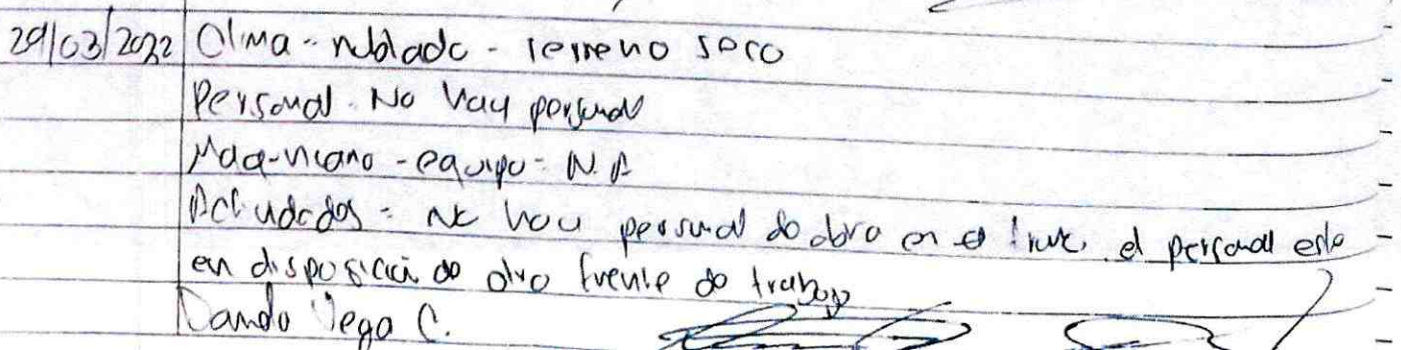 29/03/2022 Clima - nublado - terreno seco
Personal - No hay personal
Maquinaria - equipo - N.A
Actividades - No hay personal de obra en el frente, el personal esta
en disposición de otro frente de trabajo
Vega C.